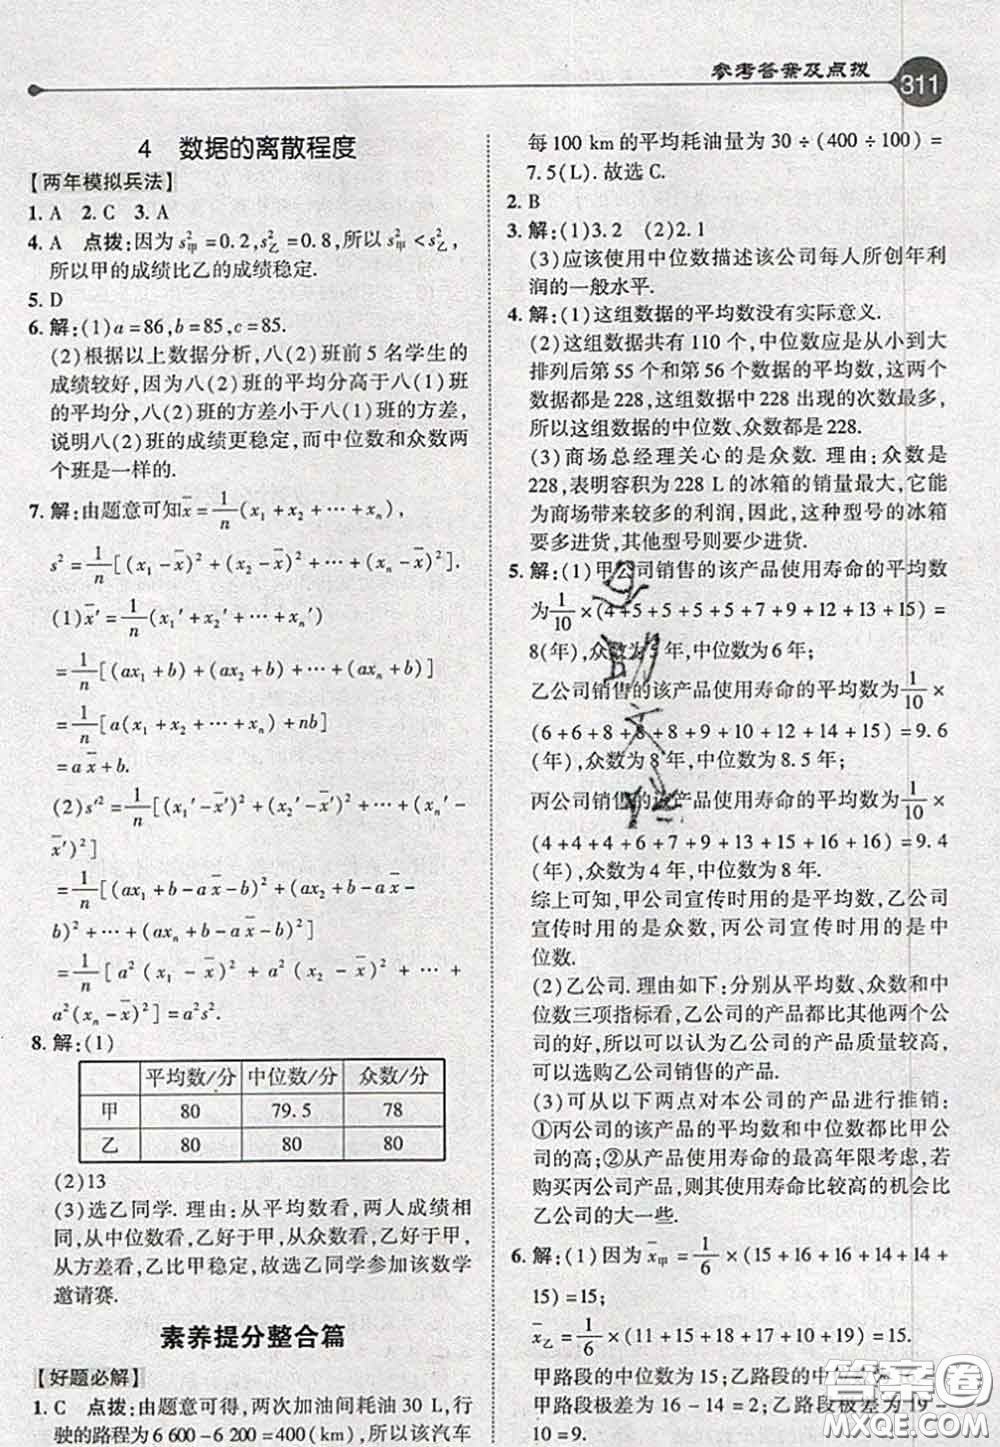 参考答案及点拨
311
4 数据的离散程度
【两年模拟兵法】
1. A 2. C 3. A
4. A 点拨:因为s²甲=0.2,s²乙=0.8,所以s²甲<s²乙,
所以甲的成绩比乙的成绩稳定.
5. D
6. 解:(1)a=86,b=85,c=85.
(2)根据以上数据分析,八(2)班前5名学生的
成绩较好,因为八(2)班的平均分高于八(1)班
的平均分,八(2)班的方差小于八(1)班的方差,
说明八(2)班的成绩更稳定,而中位数和众数两
个班是一样的.
7. 解:由题意可知x̄=1/n(x₁+x₂+⋯+xₙ),
s²=1/n[(x₁-x̄)²+(x₂-x̄)²+⋯+(xₙ-x̄)²].
(1)x̄′=1/n(x₁′+x₂′+⋯+xₙ′)
=1/n[(ax₁+b)+(ax₂+b)+⋯+(axₙ+b)]
=1/n[a(x₁+x₂+⋯+xₙ)+nb]
=ax̄+b.
(2)s′²=1/n[(x₁′-x̄′)²+(x₂′-x̄′)²+⋯+(xₙ′-
x̄′)²]
=1/n[(ax₁+b-ax̄-b)²+(ax₂+b-ax̄-
b)²+⋯+(axₙ+b-ax̄-b)²]
=1/n[a²(x₁-x̄)²+a²(x₂-x̄)²+⋯+
a²(xₙ-x̄)²]=a²s².
8. 解:(1)
平均数/分 中位数/分 众数/分
甲 80 79.5 78
乙 80 80 80
(2)13
(3)选乙同学. 理由:从平均数看,两人成绩相
同,从中位数看,乙好于甲,从众数看,乙好于甲,
从方差看,乙比甲稳定,故选乙同学参加该数学
邀请赛.
素养提分整合篇
【好题必解】
1. C 点拨:由题意可得,两次加油间耗油30 L,行
驶的路程为6 600-6 200=400(km),所以该汽车
每100 km的平均耗油量为30÷(400÷100)=
7.5(L). 故选C.
2. B
3. 解:(1)3.2 (2)2.1
(3)应该使用中位数描述该公司每人所创年利
润的一般水平.
4. 解:(1)这组数据的平均数没有实际意义.
(2)这组数据共有110个,中位数应是从小到大
排列后第55个和第56个数据的平均数,这两个
数据都是228,这组数据中228出现的次数最多,
所以这组数据的中位数、众数都是228.
(3)商场总经理关心的是众数. 理由:众数是
228,表明容积为228 L的冰箱的销量最大,它能
为商场带来较多的利润,因此,这种型号的冰箱
要多进货,其他型号则要少进货.
5. 解:(1)甲公司销售的该产品使用寿命的平均数
为1/10×(4+5+5+5+5+7+9+12+13+15)=
8(年),众数为5年,中位数为6年;
乙公司销售的该产品使用寿命的平均数为1/10×
(6+6+8+8+8+9+10+12+14+15)=9.6
(年),众数为8年,中位数为8.5年;
丙公司销售的该产品使用寿命的平均数为1/10×
(4+4+4+6+7+9+13+15+16+16)=9.4
(年),众数为4年,中位数为8年.
综上可知,甲公司宣传时用的是平均数,乙公司
宣传时用的是众数,丙公司宣传时用的是中
位数.
(2)乙公司. 理由如下:分别从平均数、众数和中
位数三项指标看,乙公司的产品都比其他公司
的好,所以可以认为乙公司的产品质量较高,
可以选购乙公司销售的产品.
(3)可从以下两点对本公司的产品进行推销:
①丙公司的该产品的平均数和中位数都比甲公
司的高;②从产品使用寿命的最高年限考虑,若
购买丙公司产品,则其使用寿命比较高的机会比
乙公司的大一些.
6. 解:(1)因为x̄甲=1/6×(15+16+16+14+14+
15)=15;
x̄乙=1/6×(11+15+18+17+10+19)=15.
甲路段的中位数为15;乙路段的中位数为16;
甲路段极差为16-14=2;乙路段极差为19-
10=9.
答案圈
MXQE.COM